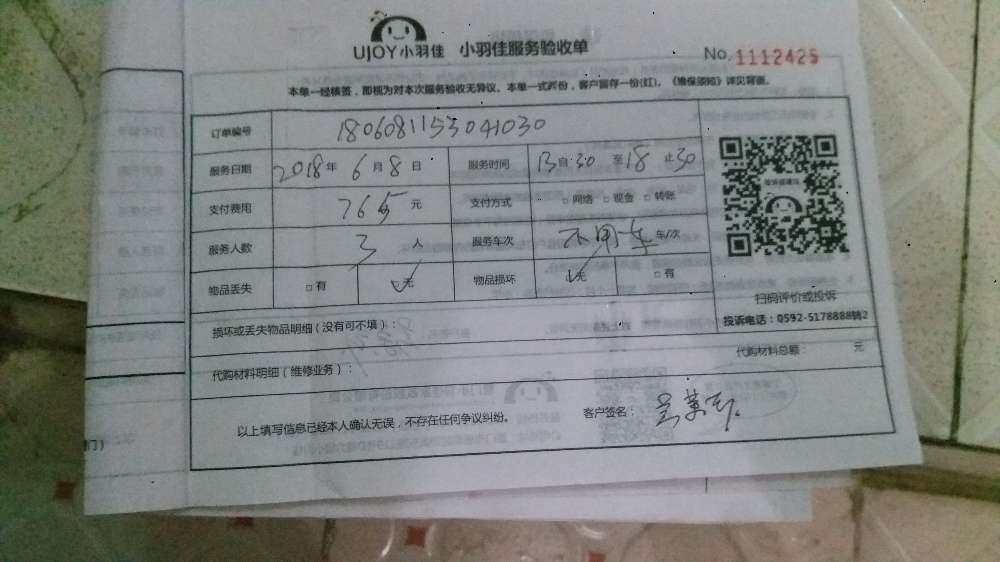 UJOY小羽佳 小羽佳服务验收单
No. 1112425
本单一经核签，即视为对本次服务验收无异议。本单一式两份，客户留存一份(红)。《维保须知》详见背面。
订单编号 1806081153041030
服务日期 2018年 6月8日 服务时间 13自:30 至18止30
支付费用 765元 支付方式 □网络 □现金 □转账
服务人数 3人 服务车次 不用车 车/次
物品丢失 □有 ✓无 物品损坏 ✓无 □有
扫码评价或投诉
投诉电话：0592-5178888转2
损坏或丢失物品明细（没有可不填）：
代购材料明细（维修业务）： 代购材料总额： 元
以上填写信息已经本人确认无误，不存在任何争议纠纷。 客户签名：